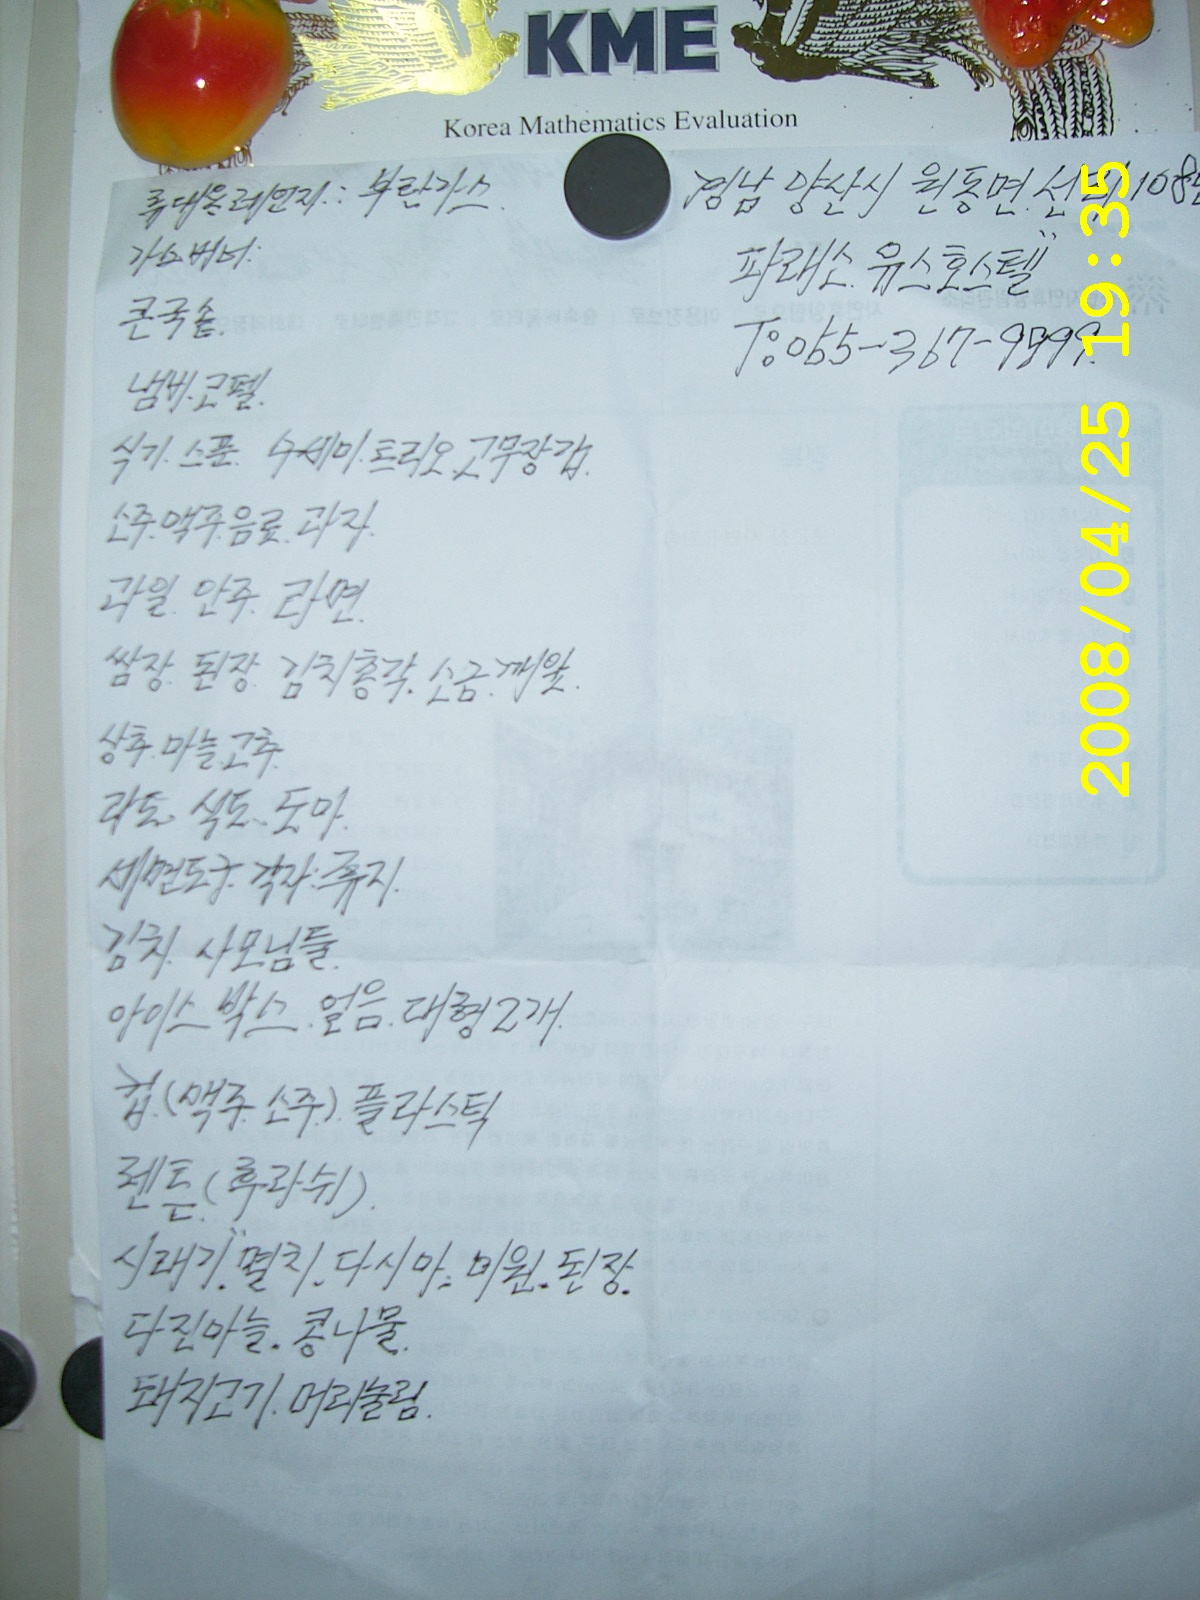 KME
Korea Mathematics Evaluation
휴대용레인지: 부탄가스
가스버너:
큰국솥.
냄비.코펠.
식기. 스푼. 수세미.트리오.고무장갑.
소주.맥주.음료.과자.
과일. 안주. 라면.
쌈장. 된장. 김치총각. 소금.깨잎.
상추.마늘.고추.
과도. 식도. 도마.
세면도구. 각자.휴지.
김치. 사모님들.
아이스박스.얼음.대형2개.
컵.(맥주.소주).플라스틱
렌튼(후라쉬).
시래기.멸치.다시마.미원.된장.
다진마늘.콩나물.
돼지고기.머리눌림.
경남 양산시 원동면 선리108
파래소 유스호스텔"
T:055-367-9999.
2008/04/25 19:35